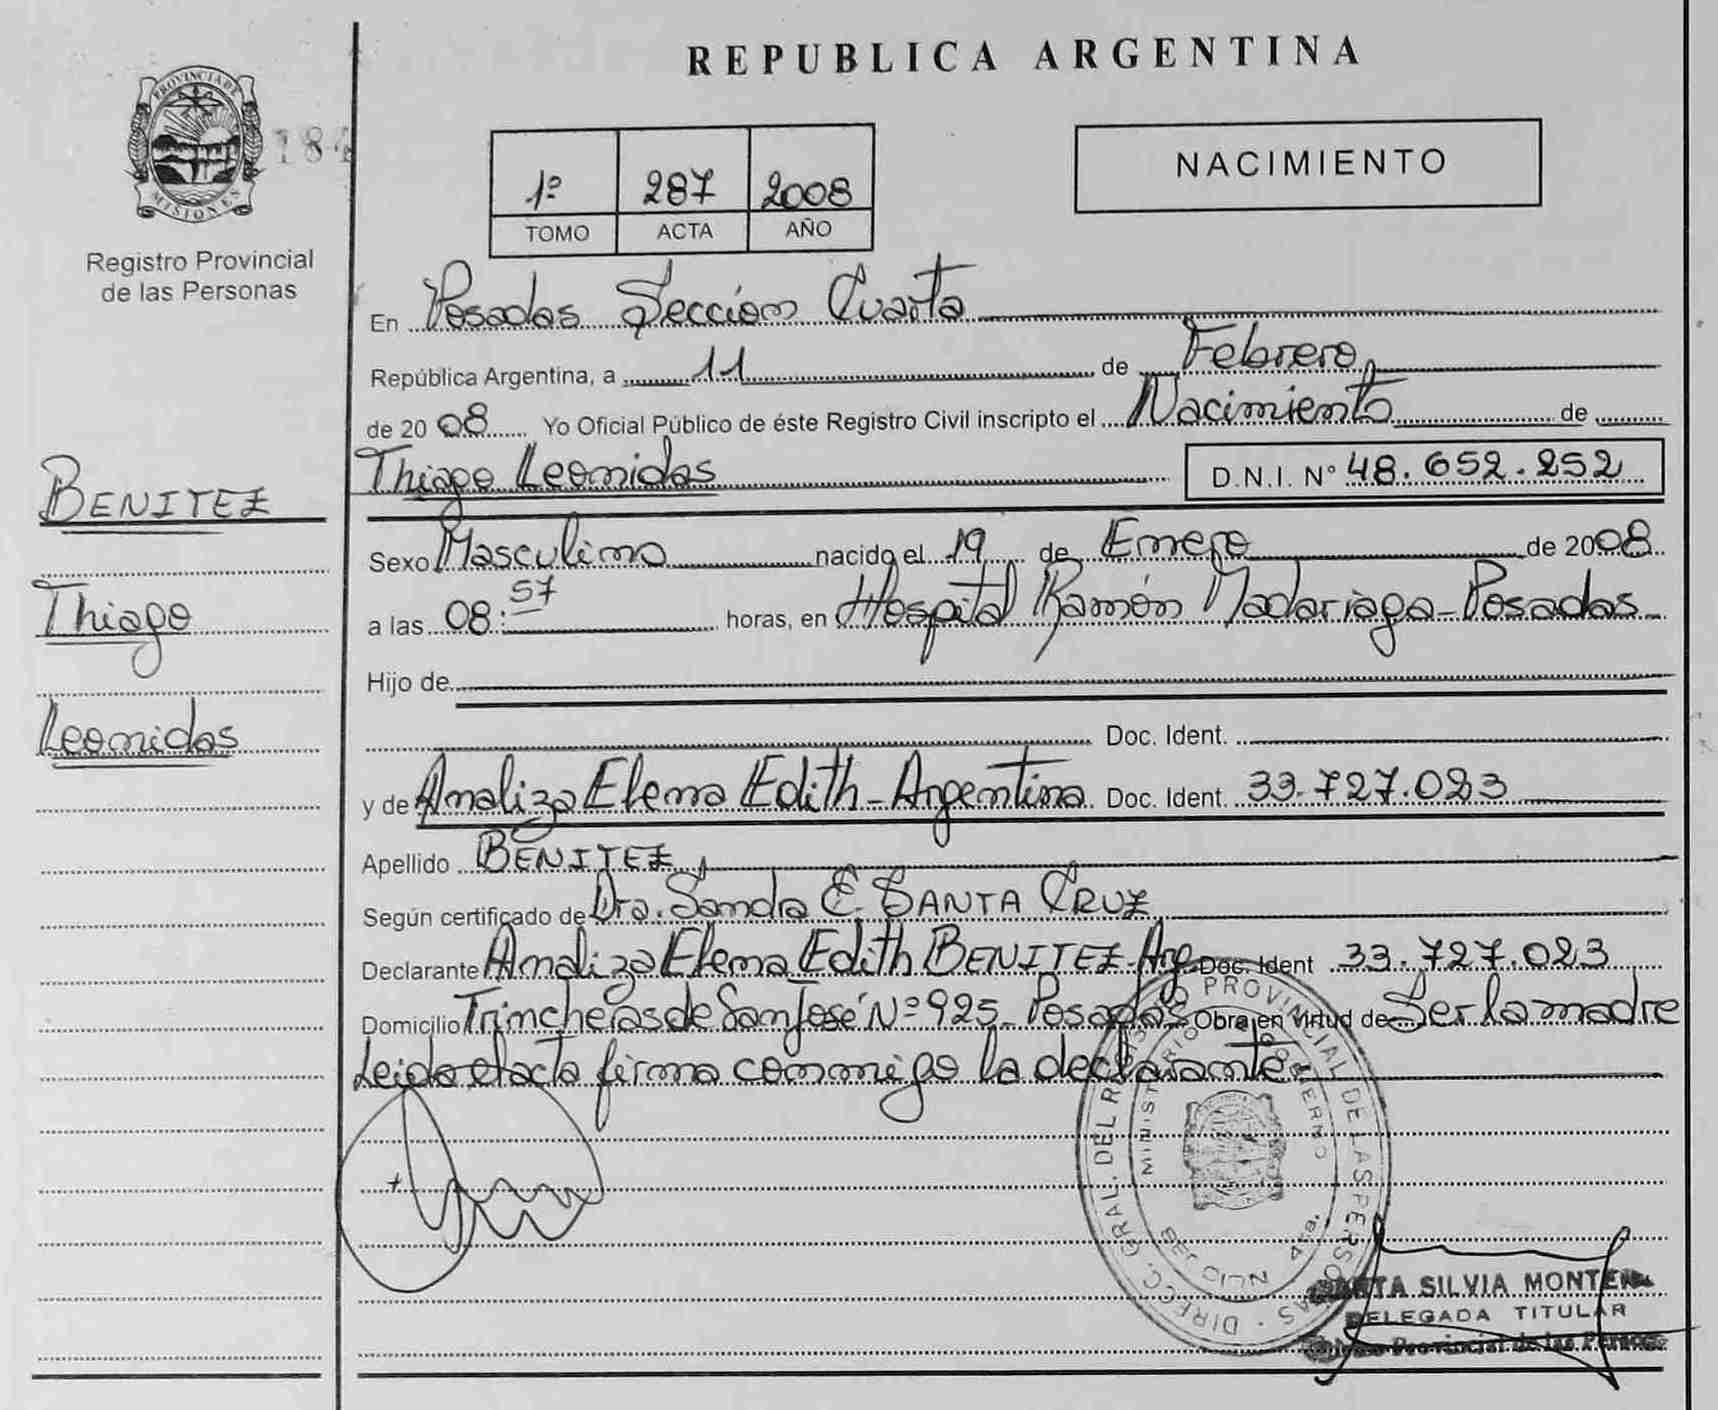 REPUBLICA ARGENTINA
PROVINCIA DE MISIONES
184
Registro Provincial
de las Personas
1º 287 2008
TOMO ACTA AÑO
NACIMIENTO
En Posadas Sección Cuarta
República Argentina, a 11 de Febrero
de 2008 Yo Oficial Público de éste Registro Civil inscripto el Nacimiento de
Thiago Leonidas D.N.I. Nº 48.652.252
BENITEZ
Thiago
Leonidas
Sexo Masculino nacido el 19 de Enero de 2008
a las 08:57 horas, en Hospital Ramón Madariaga - Posadas
Hijo de
Doc. Ident.
y de Analiza Elena Edith - Argentina Doc. Ident. 33.727.023
Apellido BENITEZ
Según certificado de Dra. Sandra E. SANTA CRUZ
Declarante Analiza Elena Edith BENITEZ - Arg. Doc. Ident 33.727.023
Domicilio Trincheras de San José Nº 925 - Posadas Obra en virtud de Ser la madre
Leida el acta firma conmigo la declarante
DIRECC. GRAL. DEL REGISTRO PROVINCIAL DE LAS PERSONAS
MINISTERIO GOBIERNO
4ta.
SILVIA
DELEGADA TITULAR
Provincial de las Personas